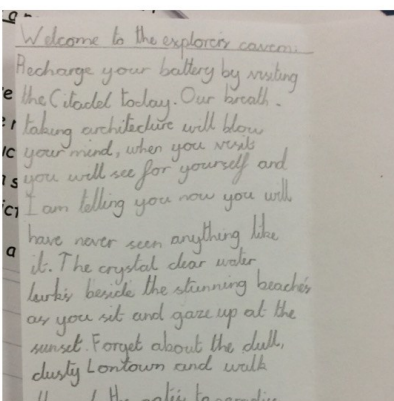 Welcome to the explorers
Recharge your battery by visiting
the Citadel today. Our breath-
taking architecture will blow
your mind, when you visit
you will see for yourself and
I am telling you now you will
have never seen anything like
it. The crystal clear water
lurks beside the stunning beaches
as you sit and gaze up at the
sunset. Forget about the dull,
dusty Lontown and walk
the gates to paradise